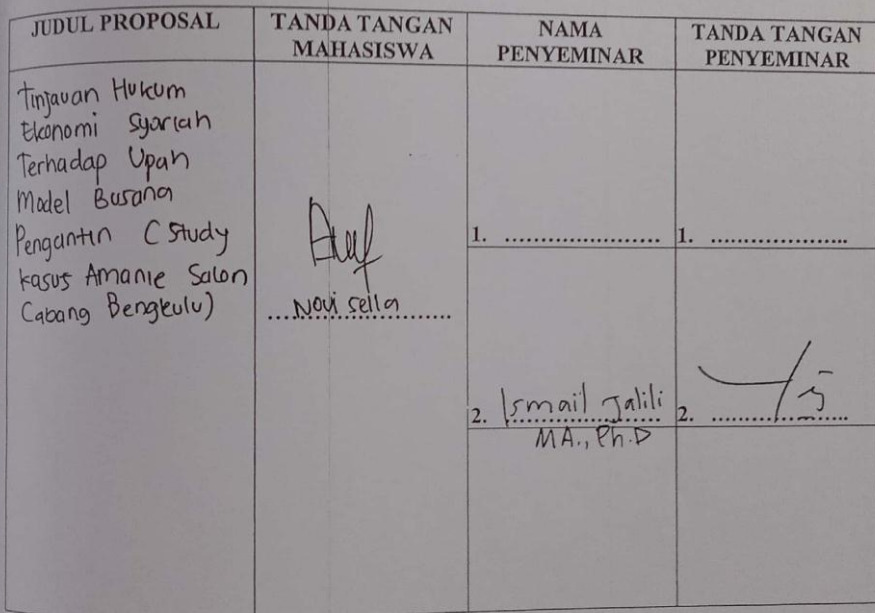 JUDUL PROPOSAL
TANDA TANGAN
MAHASISWA
NAMA
PENYEMINAR
TANDA TANGAN
PENYEMINAR
Tinjauan Hukum
Ekonomi Syariah
Terhadap Upah
Model Busana
Pengantin (Study
kasus Amanie Salon
Cabang Bengkulu)
Novi sella
1. ......................
1. ....................
2. Ismail Jalili
MA., Ph.D
2. ....................